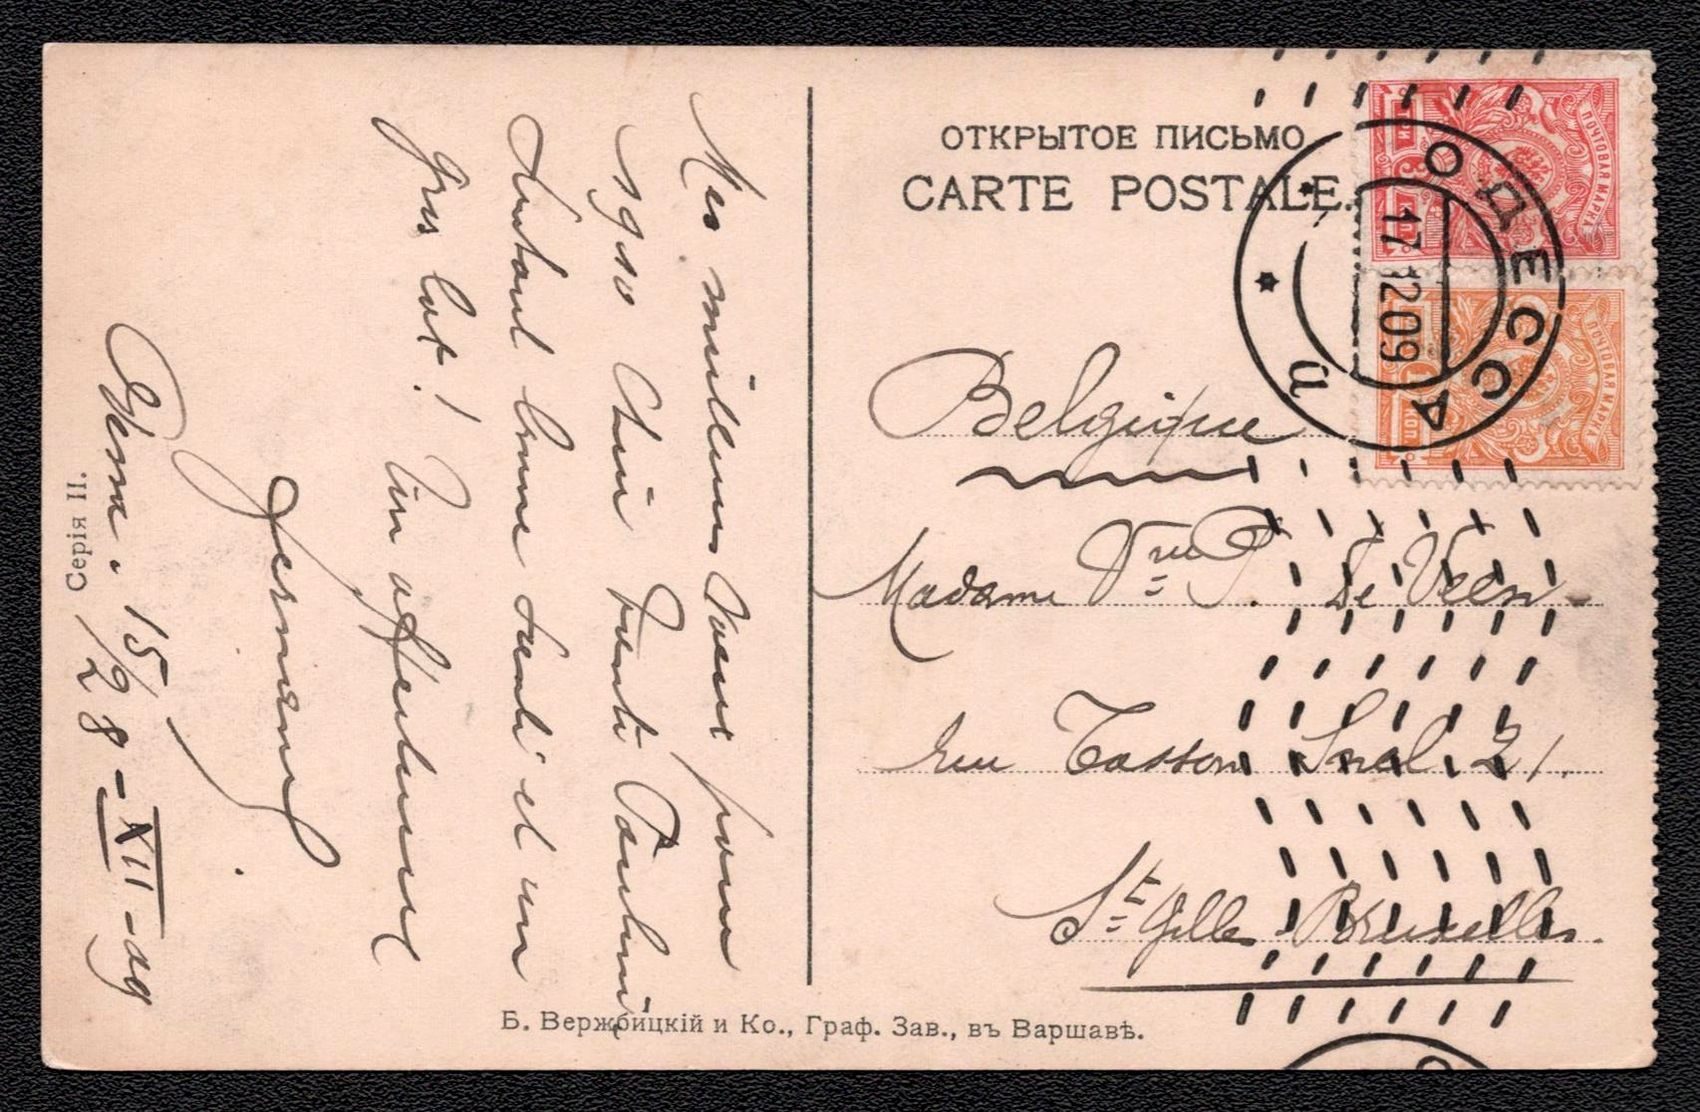 ОТКРЫТОЕ ПИСЬМО
CARTE POSTALE.
ПОЧТОВАЯ МАРКА
ПОЧТОВАЯ МАРКА
ОДЕССА
17 12 09
Belgique
Madame Vve P. De Veen
rue Tasson Snel 21
St Gilles Bruxelles.
Mes meilleurs voeux pour
1910 Chère Tante Pauline
Surtout bonne santé et un
gros lot! Une affectueuse
Germaine
Odessa. 15/28-XII-09
Серія II.
Б. Вержбицкій и Ко., Граф. Зав., въ Варшавѣ.